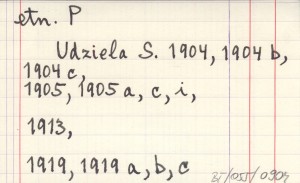 etn. P
Udziela S. 1904, 1904 b,
1904 c,
1905, 1905 a, c, i,
1913,
1919, 1919 a, b, c